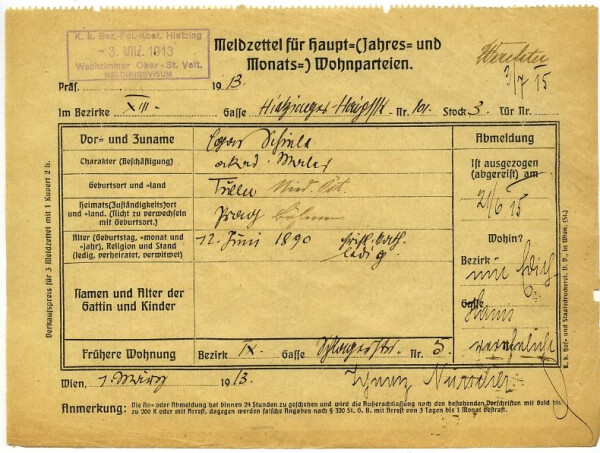 K. k. Bez.-Pol.-Kom. Hietzing
- 3. MRZ. 1913
Wachzimmer Ober-St. Veit.
MELDUNGSVISUM
Meldzettel für Haupt=(Jahres= und
Monats=) Wohnparteien.
3/7 15
Präs. 1913.
Im Bezirke XIII. Gasse Hietzinger-Hauptstr. Nr. 101. Stock 3. Tür Nr.
Vor- und Zuname Egon Schiele
Charakter (Beschäftigung) akad. Maler
Geburtsort und -land Tulln Nied. Öst.
Heimats(Zuständigkeits)ort
und -land. (Nicht zu verwechseln
mit Geburtsort.) Prag Böhmen
Alter (Geburtstag, -monat und
-jahr), Religion und Stand
(ledig, verheiratet, verwitwet) 12. Juni 1890 kath.
ledig
Namen und Alter der
Gattin und Kinder
Frühere Wohnung Bezirk IX. Gasse Schlagerstr. Nr. 5
Abmeldung
Ist ausgezogen
(abgereist) am
21/6 15
Wohin?
Bezirk
Gasse
Wien, 1. März 1913.
Anmerkung: Die An- oder Abmeldung hat binnen 24 Stunden zu geschehen und wird die Außerachtlassung nach den bestehenden Vorschriften mit Geld bis
zu 200 K oder mit Arrest, dagegen werden falsche Angaben nach § 320 St. G. B. mit Arrest von 3 Tagen bis 1 Monat bestraft.
Verkaufspreis für 3 Meldzettel mit 1 Kuvert 2 h.
K. k. Hof- und Staatsdruckerei, D. V., in Wien. (St.)